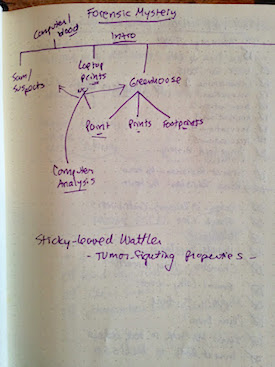 Forensic Mystery
Computer/blood
Intro
Sam/
suspects
Laptop
prints
Greenhouse
Paint
Prints
Footprints
Computer
Analysis
Sticky-leaved Wattle
- Tumor-fighting properties -